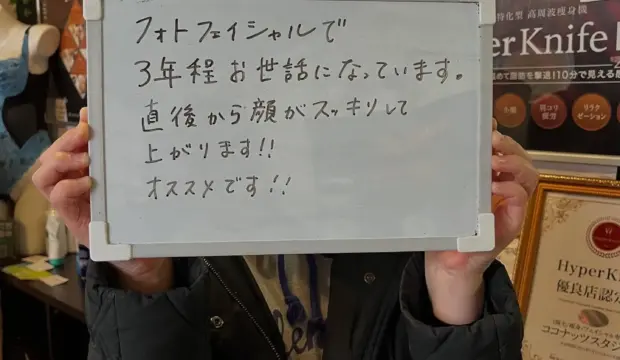 フォトフェイシャルで
3年程お世話になっています。
直後から顔がスッキリして
上がります!!
オススメです!!
特化型 高周波痩身機
er Knife
10分で見える
小顔
肩コリ
疲労
リラク
ゼーション
HyperK
優良店認
ココナッツスタジ